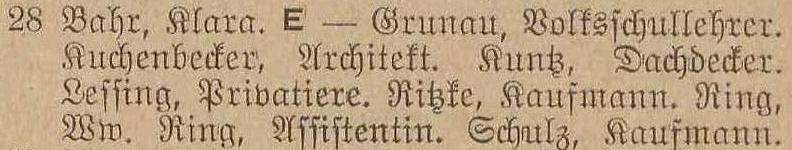 28 Bahr, Klara. E — Grunau, Volksschullehrer.
Kuchenbecker, Architekt. Kuntz, Dachdecker.
Lessing, Privatiere. Ritzke, Kaufmann. Ring,
Ww. Ring, Assistentin. Schulz, Kaufmann.